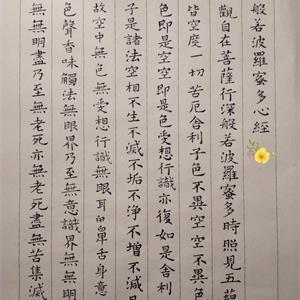 般若波羅蜜多心經
觀自在菩薩行深般若波羅蜜多時照見五蘊
皆空度一切苦厄舍利子色不異空空不異色
色即是空空即是色受想行識亦復如是舍利
子是諸法空相不生不滅不垢不淨不增不減是
故空中無色無受想行識無眼耳鼻舌身意
色聲香味觸法無眼界乃至無意識界無無明
無無明盡乃至無老死亦無老死盡無苦集滅